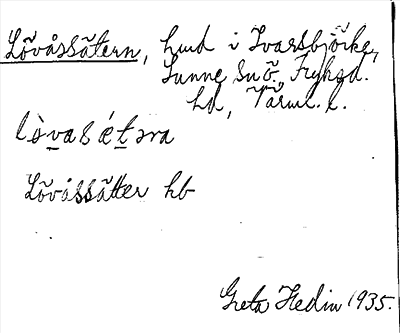 Lövåssätern, hmd i Ivarsbjörke,
Sunne Snö, Fryksd.
hd, Värml. l.
lòvasétəra
Lövåssätter hb
Greta Hedin 1935.